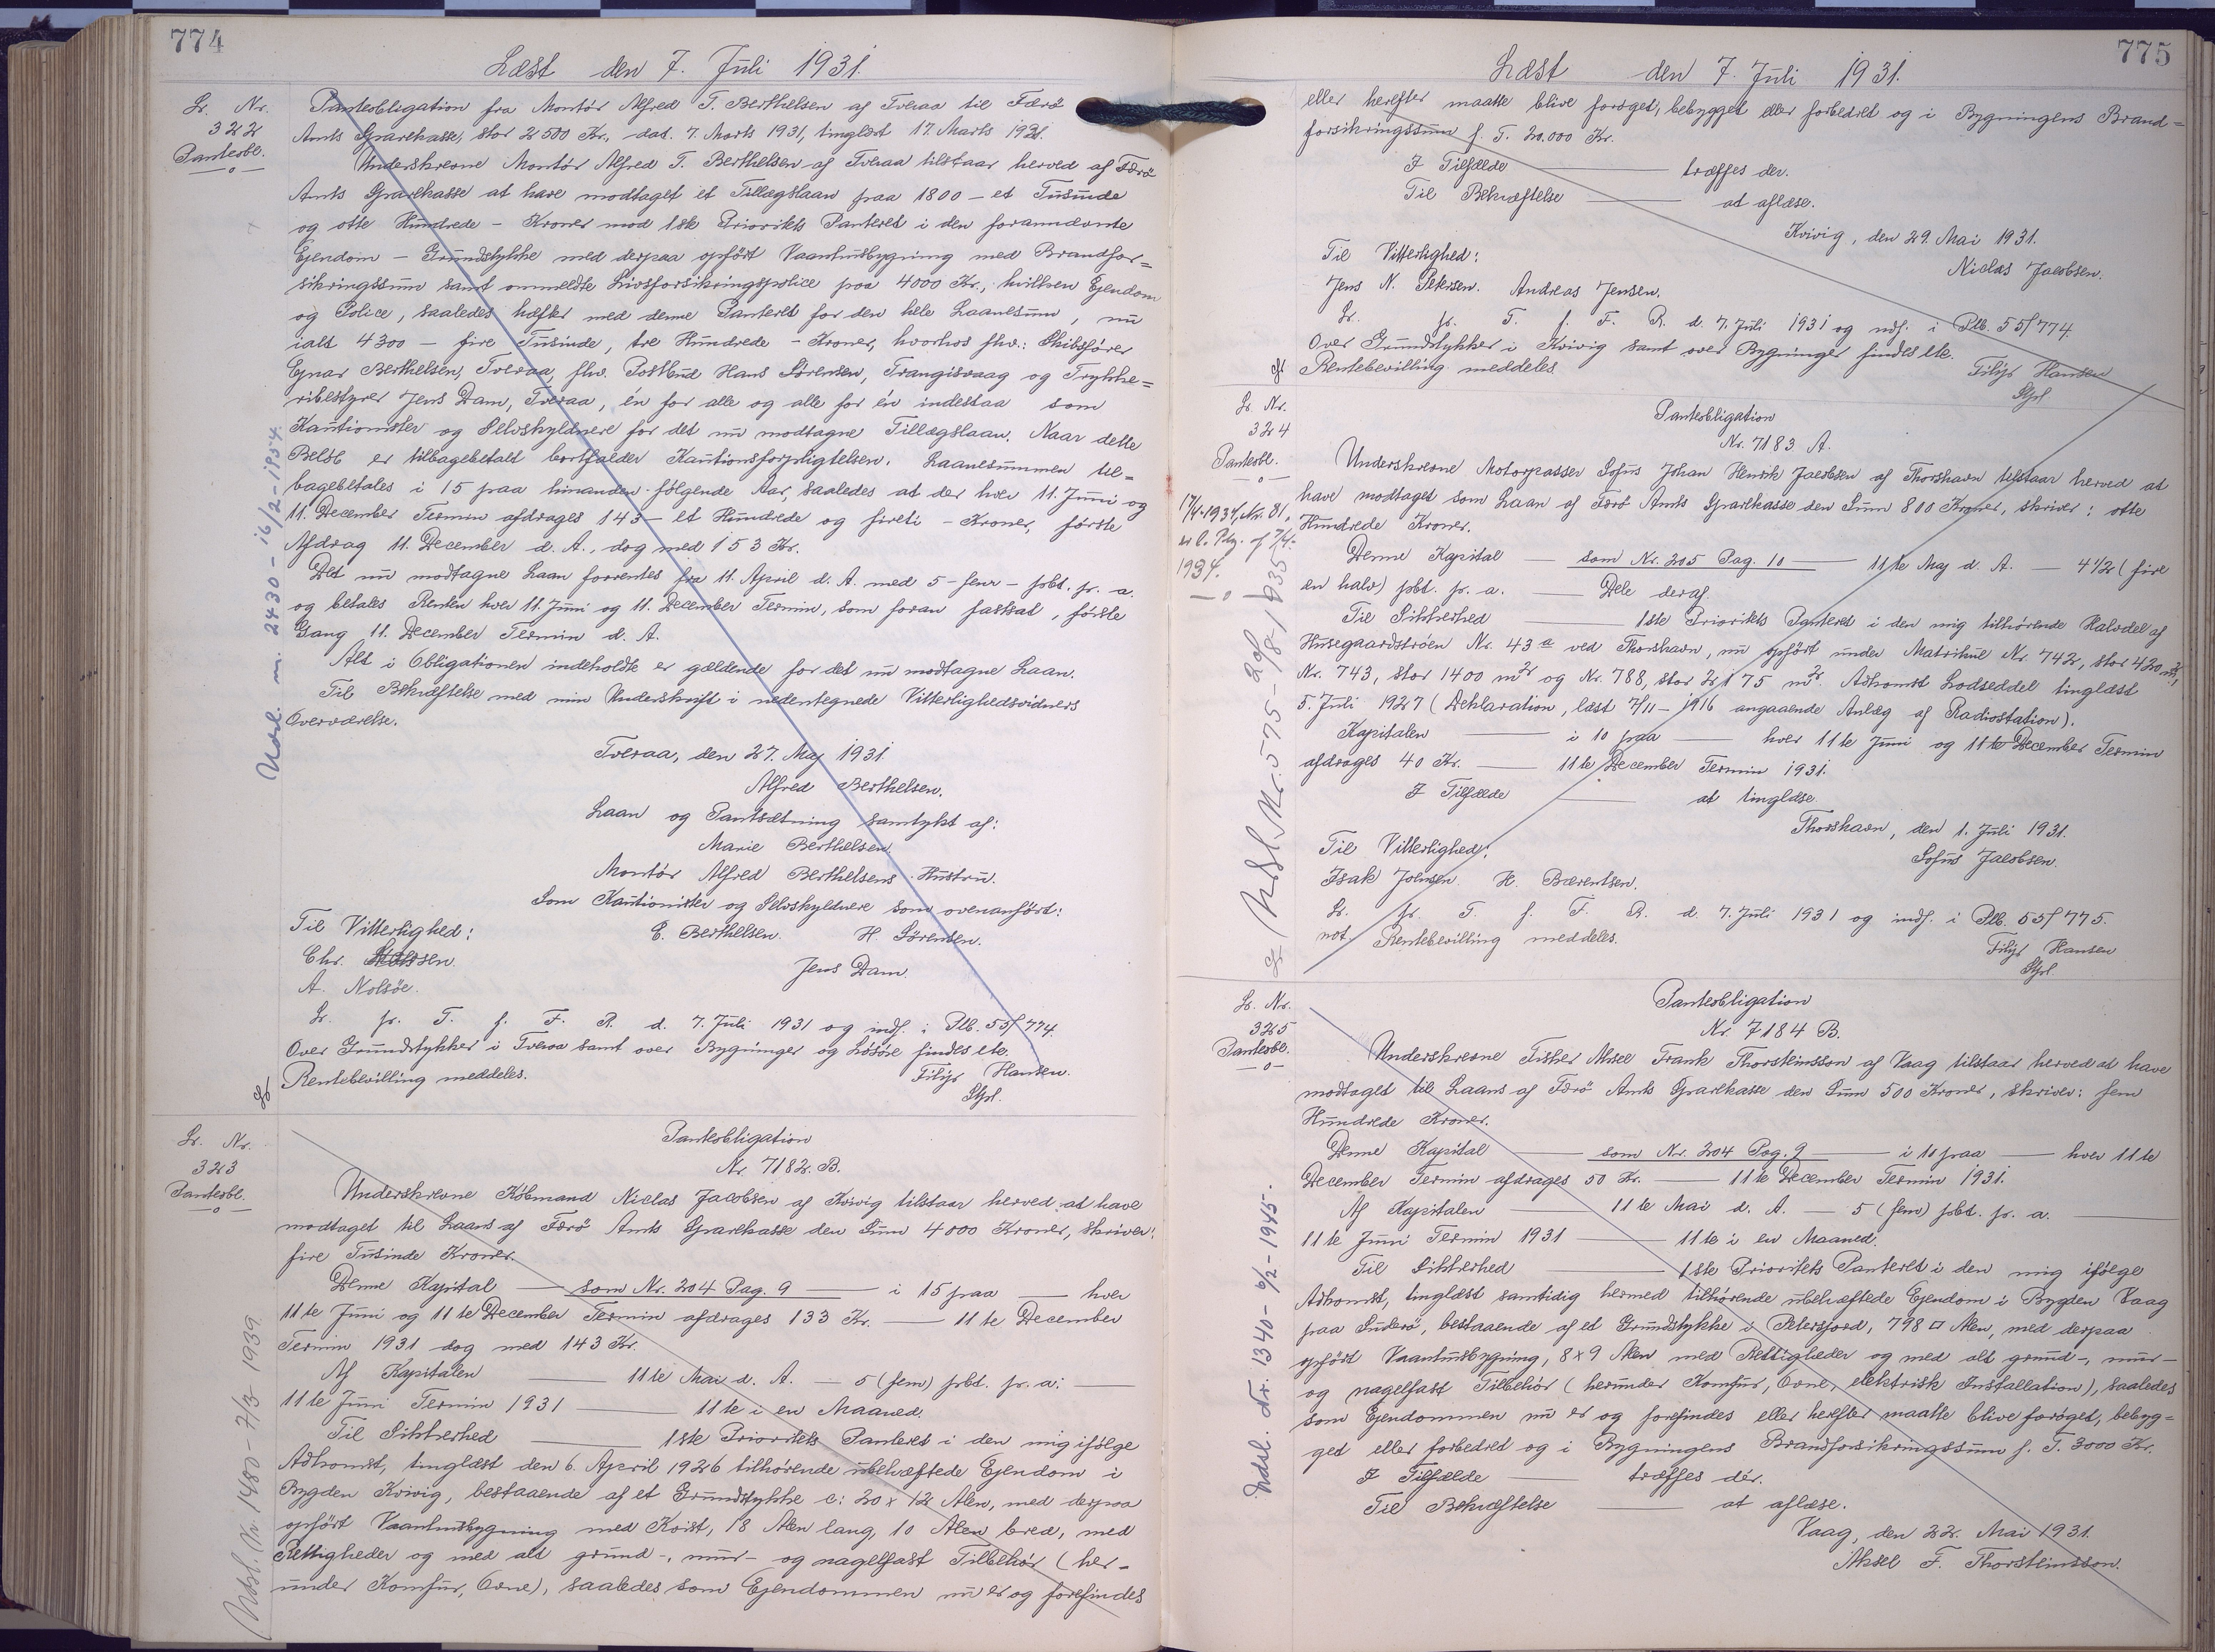 774
Læst den 7. Juli 1931.
Lr. Nr.
322
Panteobl.
Panteobligation fra Montør Alfred T. Berthelsen af Tveraa til Færø
Amts Sparekasse, stor 2500 Kr., dat. 7. Marts 1931, tinglæst 17. Marts 1931.
Underskrevne Montør Alfred T. Berthelsen af Tveraa tilstaar herved af Færø
Amts Sparekasse at have modtaget et Tillægslaan paa 1800 – et Tusinde
og otte Hundrede – Kroner mod 1ste Prioritets Panteret i den forannævnte
Ejendom – Grundstykke med derpaa opført Vaaningsbygning med Brandfor=
sikringssum samt ommeldte Livsforsikringspolice paa 4000 Kr., hvilken Ejendom
og Police, saaledes hæfter med denne Panteret for den hele Laanesum, nu
ialt 4300 – fire Tusinde, tre Hundrede – Kroner, hvorhos fhv.: Skibsfører
Ejnar Berthelsen, Tveraa, fhv. Postbud Hans Sørensen, Trangisvaag og Trykke=
ribestyrer Jens Dam, Tveraa, én for alle og alle for én indestaa som
Kautionister og Selvskyldnere for det nu modtagne Tillægslaan. Naar dette
Beløb er tilbagebetalt bortfalder Kautionsforpligtelsen. Laanesummen til=
bagebetales i 15 paa hinanden følgende Aar, saaledes at der hver 11. Juni og
11. December Termin afdrages 143 – et Hundrede og fireti – Kroner, første
Afdrag 11. December d. A., dog med 153 Kr.
Det nu modtagne Laan forrentes fra 11. April d. A. med 5 – fem – pbt. pr. a.
og betales Renten hver 11. Juni og 11. December Termin, som foran fastsat, første
Gang 11. December Termin d. A.
Alt i Obligationen indeholdte er gældende for det nu modtagne Laan.
Til Bekræftelse med min Underskrift i nedentegnede Vitterlighedsvidners
Overværelse.
Tveraa, den 27. Maj 1931.
Alfred Berthelsen.
Laan og Pantsætning samtykt af:
Marie Berthelsen.
Montør Alfred Berthelsens Hustru.
Som Kautionister og Selvskyldnere som ovenanført:
Til Vitterlighed: E. Berthelsen. H. Sørensen.
Chr.
Jens Dam.
A. Nolsøe.
Lr. pr. T. f. F. R. d. 7. Juli 1931 og indf. i Ptb. 55/774.
Over Grundstykker i Tveraa samt over Bygninger og Løsøre findes etc.
Rentebevilling meddeles. Filip Hansen.
Stful.
Udsl. m. 2430 – 16/2 – 1954.
Lr. Nr.
323
Panteobl.
Panteobligation
Nr. 7182. B.
Underskrevne Købmand Niclas Jacobsen af Kvivig tilstaar herved at have
modtaget til Laans af Færø Amts Sparekasse den Sum 4000 Kroner, skriver:
fire Tusinde Kroner.
Denne Kapital — som Nr. 204 Pag. 9 — i 15 paa — hver
11te Juni og 11te December Termin afdrages 133 Kr. — 11te December
Termin 1931 dog med 143 Kr.
Af Kapitalen — 11te Mai d. A. — 5 (fem) pbt. pr. a. —
11te Juni Termin 1931 — 11te i en Maaned.
Til Sikkerhed — 1ste Prioritets Panteret i den mig ifølge
Adkomst, tinglæst den 6. April 1926 tilhørende ubehæftede Ejendom i
Bygden Kvivig, bestaaende af et Grundstykke c: 20 x 12 Alen, med derpaa
opført Vaaningsbygning med Kvist, 18 Alen lang, 10 Alen bred, med
Rettigheder og med alt grund-, mur- og nagelfast Tilbehør (her-
under Komfur, Ovne), saaledes som Ejendommen nu er og forefindes
Udsl. Nr. 1480 – 7/3 1939.
775
Læst den 7. Juli 1931.
eller herefter maatte blive forøget, bebygget eller forbedret og i Bygningens Brand=
forsikringssum p. T. 20.000 Kr.
I Tilfælde — træffes der.
Til Bekræftelse — at aflæse.
Kvivig, den 29. Mai 1931.
Til Vitterlighed: Niclas Jacobsen.
Jens N. Petersen. Andreas Jensen.
Lr. pr. T. f. F. R. d. 7. Juli 1931 og indf. i Ptb. 55/774.
Over Grundstykker i Kvivig samt over Bygninger findes etc.
Rentebevilling meddeles Filip Hansen
Stful
Lr. Nr.
324
Panteobl.
17/4-1934, Nr. 81,
1934.
Panteobligation
Nr. 7183 A.
Underskrevne Motorpasser Sofus Johan Henrik Jacobsen af Thorshavn tilstaar herved at
have modtaget som Laan af Færø Amts Sparekasse den Sum 800 Kroner, skriver: otte
Hundrede Kroner.
Denne Kapital — som Nr. 205 Pag. 10 — 11te Maj d. A. — 4 1/2 (fire
en halv) pbt. pr. a. — Dele deraf.
Til Sikkerhed — 1ste Prioritets Panteret i den mig tilhørende Halvdel af
Husegaardstrøen Nr. 43a ved Thorshavn, nu opført under Matrikul Nr. 742, stor 420 m2,
Nr. 743, stor 1400 m2 og Nr. 788, stor 2175 m2. Adkomst Lodseddel tinglæst
5. Juli 1927 (Deklaration, læst 7/11 – 1916 angaaende Anlæg af Radiostation).
Kapitalen — i 10 paa — hver 11te Juni og 11te December Termin
afdrages 40 Kr. — 11te December Termin 1931.
I Tilfælde — at tinglæse.
Thorshavn, den 1. Juli 1931.
Til Vitterlighed: Sofus Jacobsen.
Isak Joensen. H. Bærentsen.
Lr. pr. T. f. F. R. d. 7. Juli 1931 og indf. i Ptb. 55/775
not. Rentebevilling meddeles. Filip Hansen
Stful
Udsl. Nr. 575 – 29/8 – 1935
Lr. Nr.
325
Panteobl.
Panteobligation
Nr. 7184 B.
Underskrevne Fisker Aksel Frank Thorsteinsson af Vaag tilstaar herved at have
modtaget til Laans af Færø Amts Sparekasse den Sum 500 Kroner, skriver: fem
Hundrede Kroner.
Denne Kapital — som Nr. 204 Pag. 9 — i 10 paa — hver 11te
December Termin afdrages 50 Kr. — 11te December Termin 1931.
Af Kapitalen — 11te Mai d. A. — 5 (fem) pbt. pr. a. —
11te Juni Termin 1931 — 11te i en Maaned.
Til Sikkerhed — 1ste Prioritets Panteret i den mig ifølge
Adkomst, tinglæst samtidig hermed tilhørende ubehæftede Ejendom i Bygden Vaag
paa Suderø, bestaaende af et Grundstykke i Petersjord, 798 □ Alen, med derpaa
opført Vaaningsbygning, 8 x 9 Alen med Rettigheder og med alt grund-, mur-
og nagelfast Tilbehør (herunder Komfur, Ovne, elektrisk Installation), saaledes
som Ejendommen nu er og forefindes eller herefter maatte blive forøget, bebyg=
get eller forbedret og i Bygningens Brandforsikringssum p. T. 3000 Kr.
I Tilfælde — træffes dér.
Til Bekræftelse — at aflæse.
Vaag, den 22. Mai 1931.
Aksel F. Thorsteinsson.
Udsl. Nr. 1340 – 6/2 – 1945.